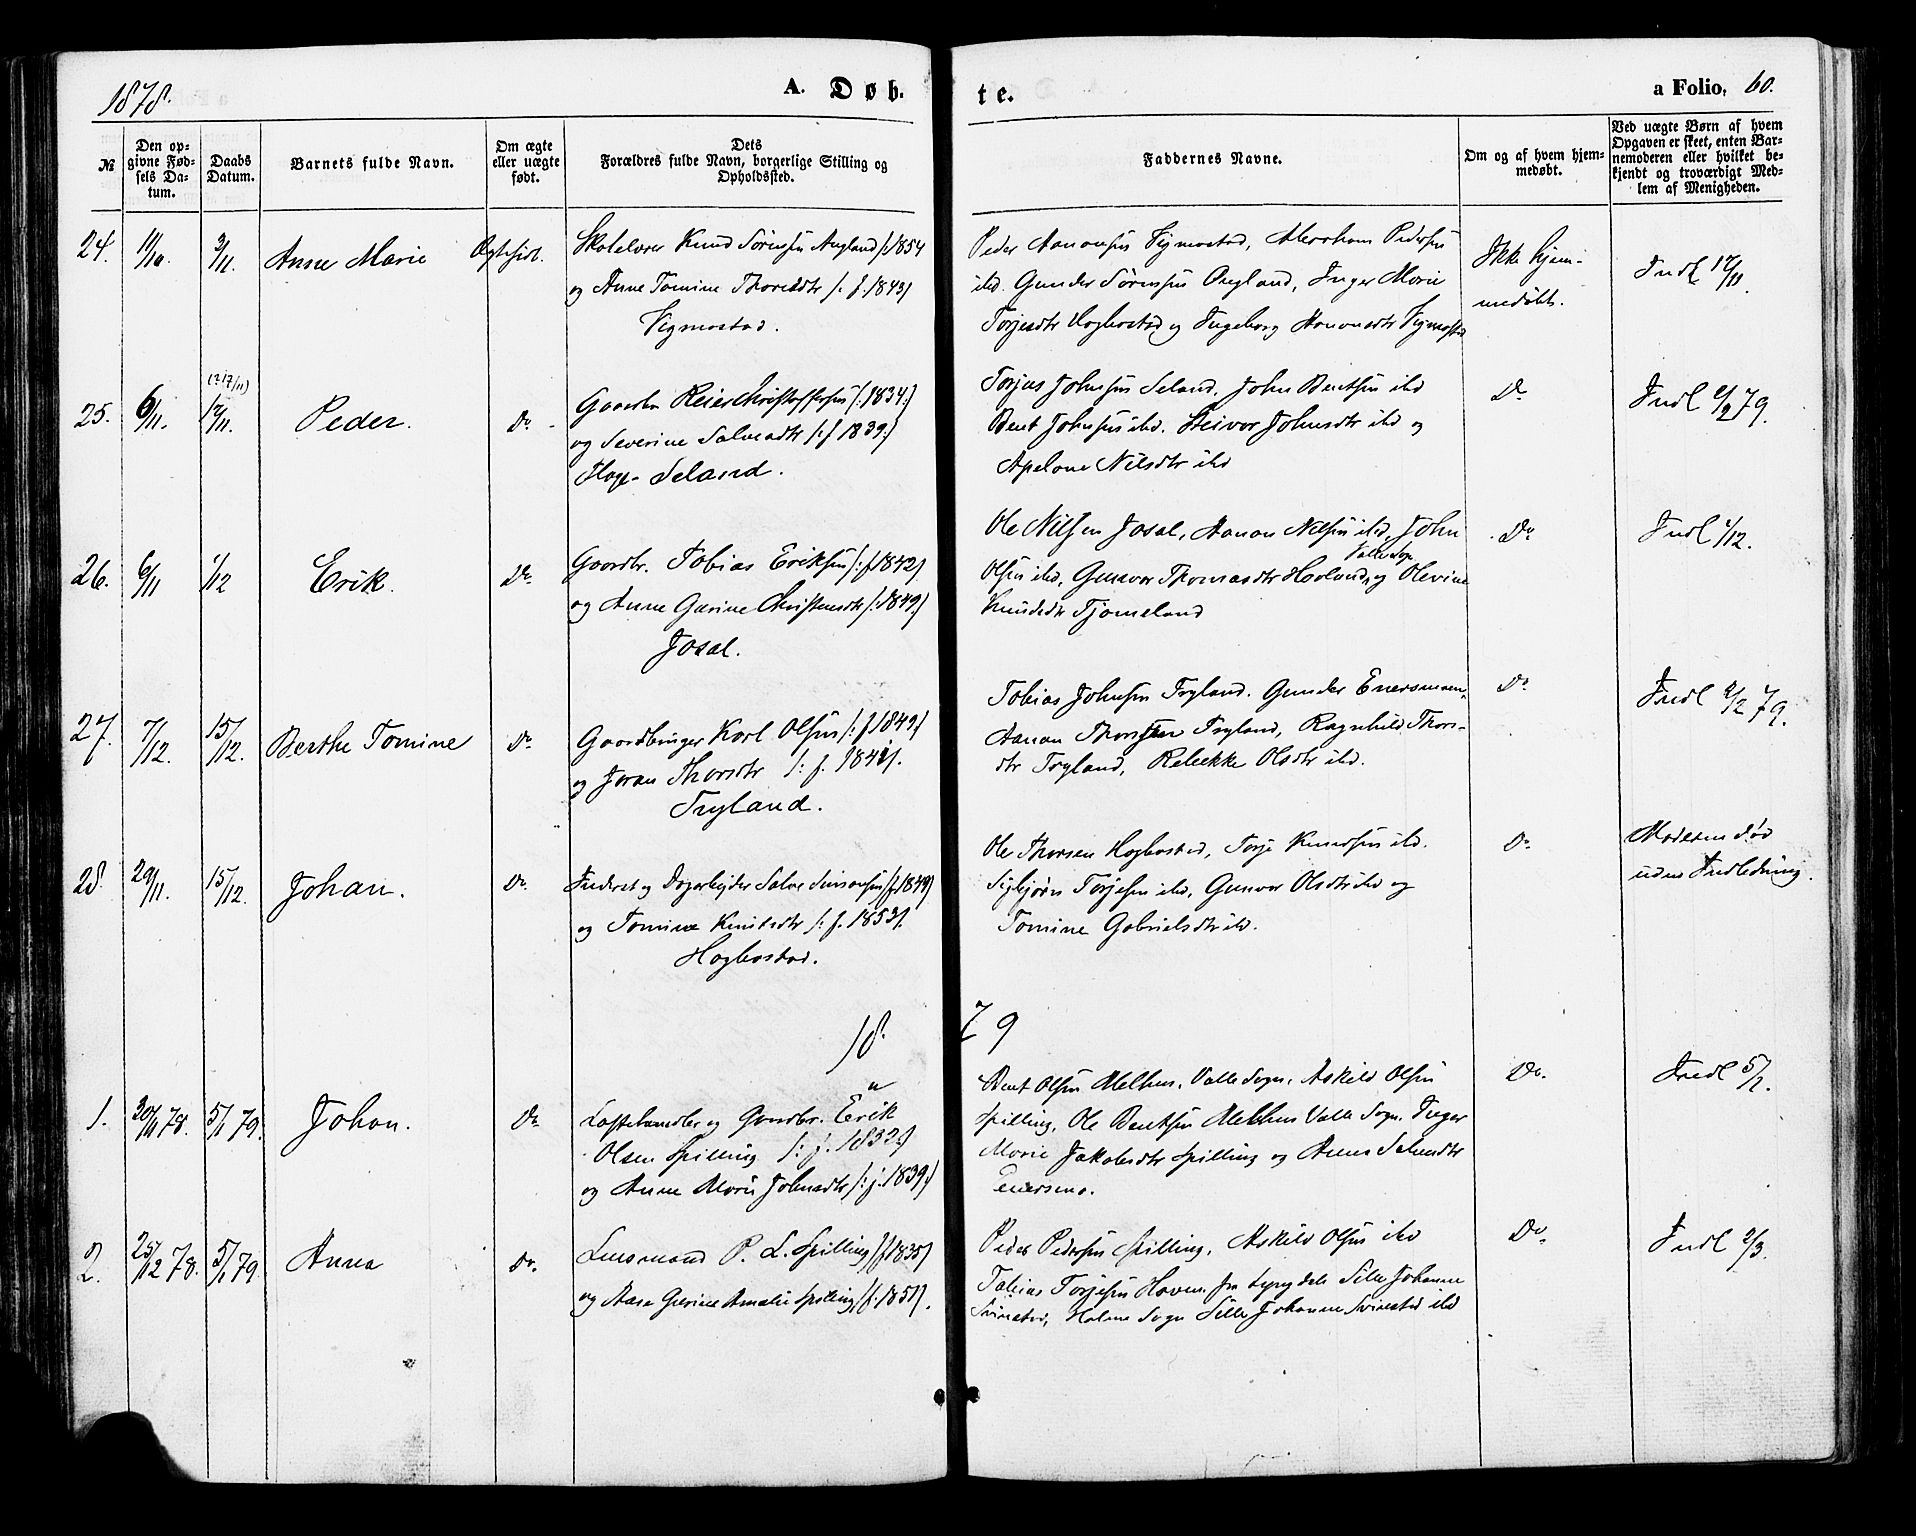 1878.
A. Døb.
te.
a Folio, 60.
№
Den op-
givne Fød-
sels Da-
tum.
Daabs
Datum.
Barnets fulde Navn.
Om ægte
eller uægte
født.
Dets
Forældres fulde Navn, borgerlige Stilling og
Opholdssted.
Faddernes Navne.
Om og af hvem hjem-
medøbt.
Ved uægte Børn af hvem
Opgaven er skeet, enten Bar-
nemoderen eller hvilket be-
kjendt og troværdigt Med-
lem af Menigheden.
24.
3/11.
Anne Marie
Skolelærer Knud Sørensen 1854
og Anne Tomine f. 1843
Vigmostad.
Peder Aanonsen Vigmostad, Abraham Pedersen
ibd. Gunder Sørensen Øngland, Inger Marie
Torjesdtr Hogbostad og Ingeborg Aanonsdtr Vigmostad
Ikke hjem-
medøbt.
Indl 17/11.
25.
6/11.
(? 17/11)
17/11.
Peder.
Do.
Gaardbr. Reier Christoffersen /: 1834 :/
og Severine Salvesdtr /: f 1839 :/
Hage-Seland.
Torjus Johnsen Seland, John Bentsen ibd
Bent Johnsen ibd. Steivor Johnsdtr ibd og
Apelone Nilsdtr ibd
Do
Indl 2/2 79.
26.
6/11
1/12
Erik.
Do.
Gaardbr. Tobias Eriksen /: f 1842 /
og Anne Gurine Christensdtr /: 1849 /
Josal.
Ole Nilsen Josal, Aanon Nilsen ibd, John
Valle Sogn
Olsen ibd, Gunvor Thomasdtr Haaland, og Olevine
Knudsdtr Tjomeland
Do
Indl 1/12.
27.
7/12.
15/12.
Berthe Tomine
Do
Gaardbruger Karl Olsen /: f 1849 /
og Joran Thorsdtr /: f. 1841 /.
Tryland.
Tobias Johnsen Tryland. Gunder Enersmoen,
Aanon Thorsen Tryland, Ragnhild Thors-
dtr Tryland, Rebekke Olsdtr ibd.
Do
Indl 2/2 79.
28.
29/11.
15/12.
Johan.
Do.
Inderst og Dagarbejder Salve Simonsen /f 1849/
og Tomine Knudsdtr /: f. 1853 /.
Hogbostad.
Ole Thorsen Hogbostad, Torje Knudsen ibd.
Sigbjørn Torjesen ibd, Gunvor Olsdtr ibd og
Tomine Gabrielsdtr ibd.
Do.
Moderen død
uden Indledning.
18 79
1.
5/1 79.
Johan.
Do
og Gaardbr. Erik
Olsen Spilling /: f. 1832 :/
og Anne Marie Johnsdtr /: f. 1839 :/
Bent Olsen Melhus, Valle Sogn, Askild Olsen
Spilling, Ole Bentsen Melhus Valle Sogn. Inger
Marie Jakobsdtr Spilling og Anne
Enersmo.
Do.
Indl 5/1.
2.
25/12 78.
5/1 79.
Anna
Do.
Lensmand P. L. Spilling /f 1835/
og Aase Gurine Amalie Spilling /f. 1851/.
Peder Pedersen Spilling, Askild Olsen ibd
Tobias Torjesen Haven fra Lyngdal Sille Johanne
Svinestad, Holme Sogn Sille Johanne Svinestad ibd
Do.
Indl 2/3.